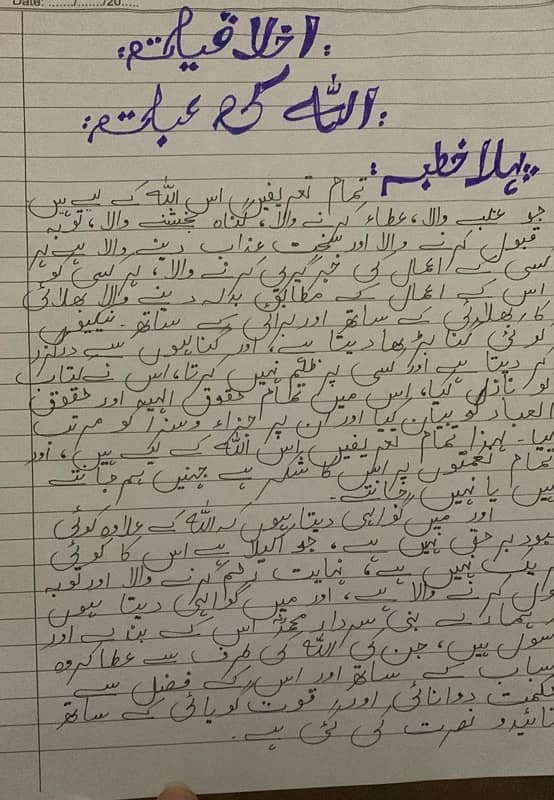 Date: ......./......./20.....
:اخلاقیات:
:اللہ کی عبادت:
پہلا خطبہ:
تمام تعریفیں اس اللہ کے لیے ہیں
جو غلبے والا، عطاء کرنے والا، گناہ بخشنے والا، توبہ
قبول کرنے والا اور سخت عذاب دینے والا ہے ہر
کسی کے اعمال کی خبر گیری کرنے والا، ہر کسی کو
اس کے اعمال کے مطابق بدلہ دینے والا بھلائی
کا بھلائی کے ساتھ اور برائی کے ساتھ۔ نیکیوں
کو کئی گنا بڑھا دیتا ہے، اور گناہوں سے درگزر
کر دیتا ہے اور کسی پر ظلم نہیں کرتا، اس نے کتاب
کو نازل کیا، اس میں تمام حقوق الہیہ اور حقوق
العباد کو بیان کیا اور ان پر جزاء و سزا کو مرتب
کیا۔ لہذا تمام تعریفیں اس اللہ کے لیے ہیں، اور
تمام نعمتوں پر اس کا شکر ہے جنہیں ہم جانتے
ہیں یا نہیں جانتے۔
اور میں گواہی دیتا ہوں کہ اللہ کے علاوہ کوئی
معبود برحق نہیں ہے، جو اکیلا ہے اس کا کوئی
شریک نہیں ہے، نہایت رحم کرنے والا اور توبہ
قبول کرنے والا ہے، اور میں گواہی دیتا ہوں
ہمارے نبی سردار محمدﷺ اس کے بندے اور
رسول ہیں، جن کی اللہ کی طرف سے عطا کردہ
کتاب کے ساتھ اور اس کے فضل سے
حکمت و دانائی اور قوت گویائی کے ساتھ
تائید و نصرت کی گئی ہے۔